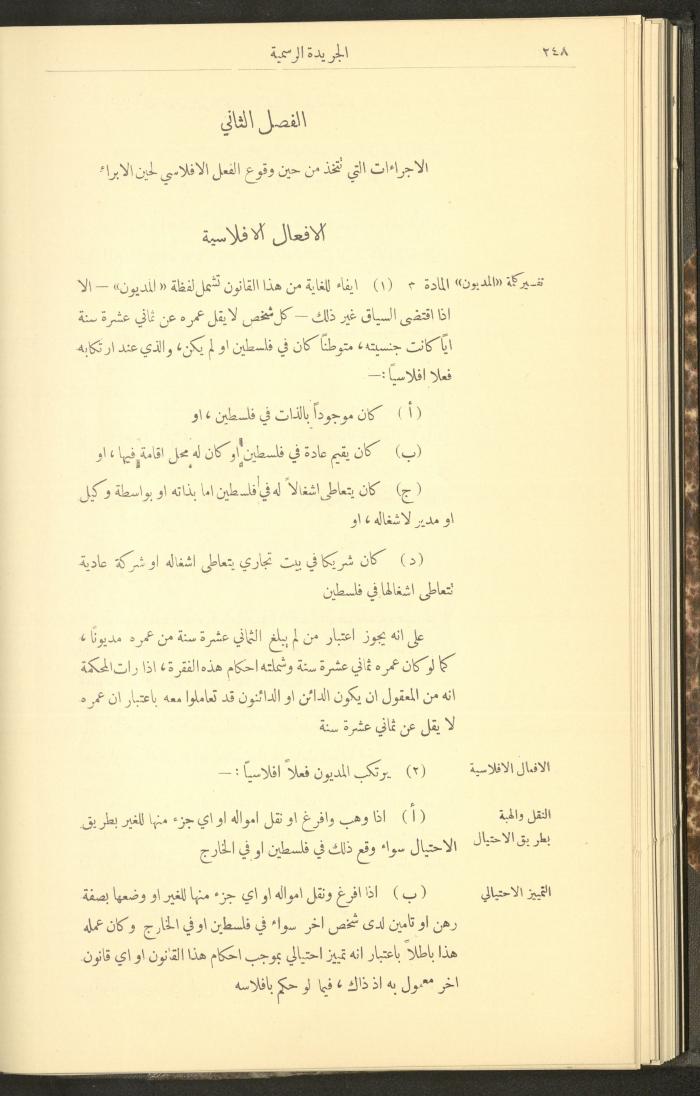 ٢٤٨
الجريدة الرسمية
الفصل الثاني
الاجراءات التي تتخذ من حين وقوع الفعل الافلاسي لحين الابراء
الافعال الافلاسية
تفسير كلمة «المديون» المادة ٣ (١) ايفاء للغاية من هذا القانون تشمل لفظة «المديون» — الا
اذا اقتضى السياق غير ذلك — كل شخص لا يقل عمره عن ثماني عشرة سنة
ايًا كانت جنسيته، متوطنًا كان في فلسطين او لم يكن، والذي عند ارتكابه
فعلا افلاسيًا :—
(أ) كان موجوداً بالذات في فلسطين، او
(ب) كان يقيم عادة في فلسطين او كان له محل اقامة فيها، او
(ج) كان يتعاطى اشغالاً له في فلسطين اما بذاته او بواسطة وكيل
او مدير لاشغاله، او
(د) كان شريكا في بيت تجاري يتعاطى اشغاله او شركة عادية
تتعاطى اشغالها في فلسطين
على انه يجوز اعتبار من لم يبلغ الثماني عشرة سنة من عمره مديونًا،
كما لو كان عمره ثماني عشرة سنة وشملته احكام هذه الفقرة، اذا رات المحكمة
انه من المعقول ان يكون الدائن او الدائنون قد تعاملوا معه باعتبار ان عمره
لا يقل عن ثماني عشرة سنة
الافعال الافلاسية (٢) يرتكب المديون فعلاً افلاسيًا :—
النقل والهبة (أ) اذا وهب وافرغ او نقل امواله او اي جزء منها للغير بطريق
بطريق الاحتيال الاحتيال سواء وقع ذلك في فلسطين او في الخارج
التمييز الاحتيالي (ب) اذا افرغ ونقل امواله او اي جزء منها للغير او وضعها بصفة
رهن او تامين لدى شخص اخر سواء في فلسطين او في الخارج وكان عمله
هذا باطلاً باعتبار انه تمييز احتيالي بموجب احكام هذا القانون او اي قانون
اخر معمول به اذ ذاك، فيما لو حكم بافلاسه